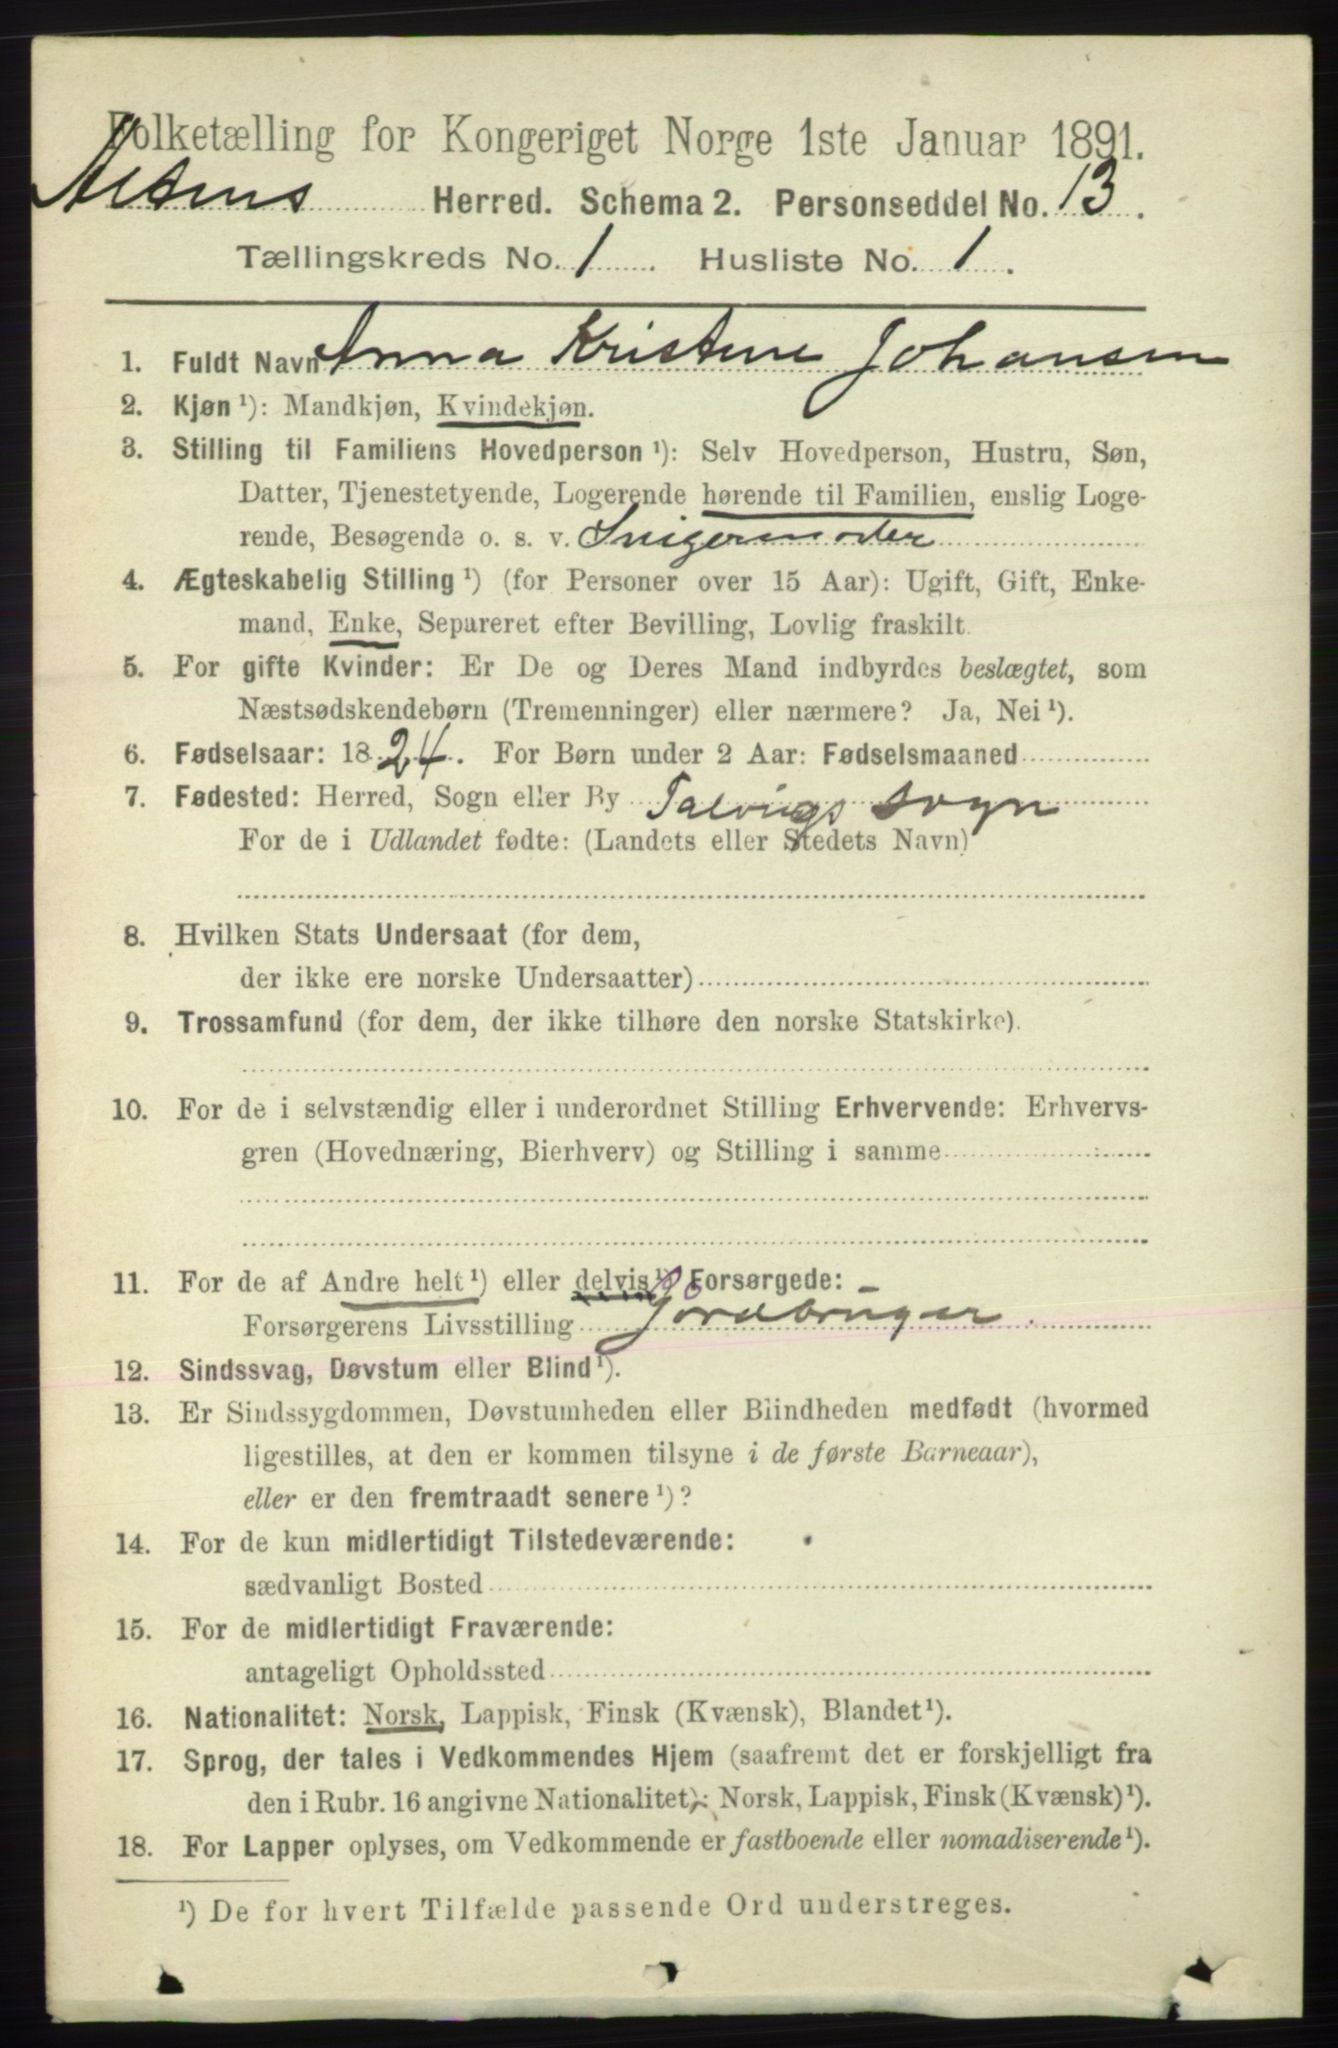 Folketælling for Kongeriget Norge 1ste Januar 1891.
Altens Herred. Schema 2. Personseddel No. 13.
Tællingskreds No. 1. Husliste No. 1.
1. Fuldt Navn Anna Kristine Johansen
2. Kjøn ¹): Mandkjøn, Kvindekjøn.
3. Stilling til Familiens Hovedperson ¹): Selv Hovedperson, Hustru, Søn,
Datter, Tjenestetyende, Logerende hørende til Familien, enslig Loge-
rende, Besøgende o. s. v. Svigermoder
4. Ægteskabelig Stilling ¹) (for Personer over 15 Aar): Ugift, Gift, Enke-
mand, Enke, Separeret efter Bevilling, Lovlig fraskilt.
5. For gifte Kvinder: Er De og Deres Mand indbyrdes beslægtet, som
Næstsødskendebørn (Tremenninger) eller nærmere? Ja, Nei ¹).
6. Fødselsaar: 1824. For Børn under 2 Aar: Fødselsmaaned
7. Fødested: Herred, Sogn eller By Talvigs sogn
For de i Udlandet fødte: (Landets eller Stedets Navn)
8. Hvilken Stats Undersaat (for dem,
der ikke ere norske Undersaatter)
9. Trossamfund (for dem, der ikke tilhøre den norske Statskirke).
10. For de i selvstændig eller i underordnet Stilling Erhvervende: Erhvervs-
gren (Hovednæring, Bierhverv) og Stilling i samme
11. For de af Andre helt ¹) eller delvis ¹) Forsørgede:
Forsørgerens Livsstilling Jordbruger.
12. Sindssvag, Døvstum eller Blind ¹).
13. Er Sindssygdommen, Døvstumheden eller Blindheden medfødt (hvormed
ligestilles, at den er kommen tilsyne i de første Barneaar),
eller er den fremtraadt senere ¹)?
14. For de kun midlertidigt Tilstedeværende:
sædvanligt Bosted
15. For de midlertidigt Fraværende:
antageligt Opholdssted
16. Nationalitet: Norsk, Lappisk, Finsk (Kvænsk), Blandet ¹).
17. Sprog, der tales i Vedkommendes Hjem (saafremt det er forskjelligt fra
den i Rubr. 16 angivne Nationalitet): Norsk, Lappisk, Finsk (Kvænsk) ¹).
18. For Lapper oplyses, om Vedkommende er fastboende eller nomadiserende ¹).
¹) De for hvert Tilfælde passende Ord understreges.